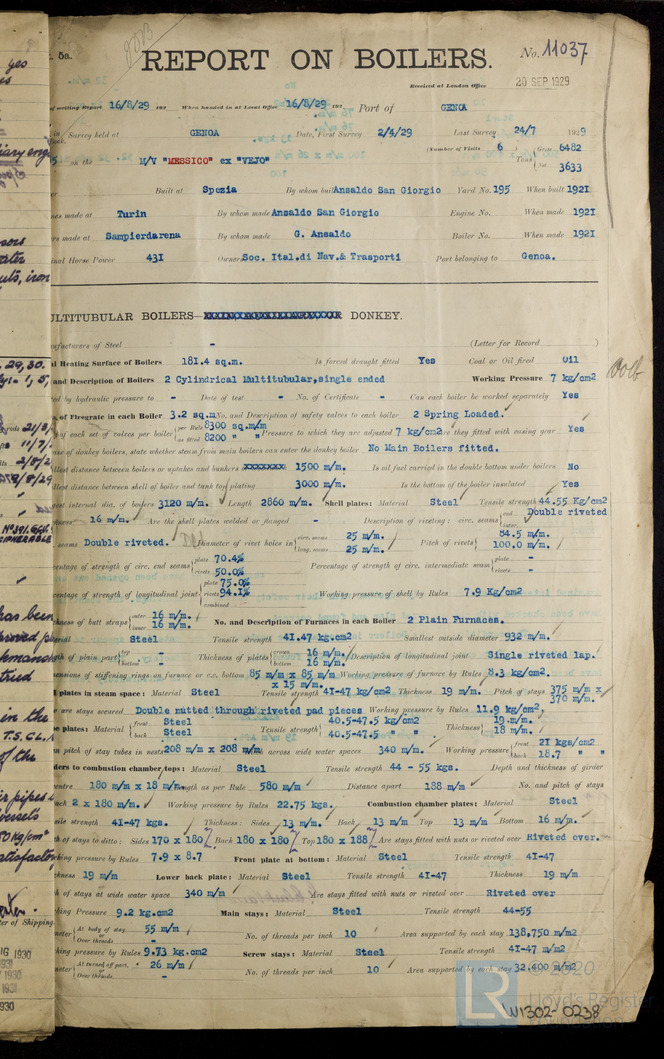 5a.
REPORT ON BOILERS.
No. 11037
Received at London Office
20 SEP 1929
of writing Report 16/8/29 192 When handed in at Local Office 16/8/29 192 Port of GENOA
in Survey held at GENOA Date, First Survey 2/4/29 Last Survey 24/7 1929
(Number of Visits 6) Gross 6482
Tons
Net 3633
on the M/V "MESSICO" ex "VEJO"
Built at Spezia By whom built Ansaldo San Giorgio Yard No. 195 When built 1921
made at Turin By whom made Ansaldo San Giorgio Engine No. When made 1921
made at Sampierdarena By whom made G. Ansaldo Boiler No. When made 1921
Horse Power 431 Owners Soc. Ital.di Nav.& Trasporti Port belonging to Genoa.
MULTITUBULAR BOILERS— DONKEY.
Manufacturers of Steel - (Letter for Record )
Heating Surface of Boilers 181.4 sq.m. Is forced draught fitted Yes Coal or Oil fired Oil
and Description of Boilers 2 Cylindrical Multitubular,single ended Working Pressure 7 kg/cm2
by hydraulic pressure to - Date of test - No. of Certificate - Can each boiler be worked separately Yes
of Firegrate in each Boiler 3.2 sq.m. No. and Description of safety valves to each boiler 2 Spring Loaded.
of each set of valves per boiler per Rule 8300 sq.m/m
as fitted 8200 " " Pressure to which they are adjusted 7 kg/cm2 are they fitted with easing gear Yes
case of donkey boilers, state whether steam from main boilers can enter the donkey boiler No Main Boilers fitted.
distance between boilers or uptakes and bunkers 1500 m/m. Is oil fuel carried in the double bottom under boilers No
distance between shell of boiler and tank top plating 3000 m/m. Is the bottom of the boiler insulated Yes
internal dia. of boilers 3120 m/m. Length 2860 m/m. Shell plates: Material Steel Tensile strength 44.55 Kg/cm2
16 m/m. Are the shell plates welded or flanged - Description of riveting: circ. seams end Double riveted
inter.
seams Double riveted. Diameter of rivet holes in circ. seams 25 m/m. Pitch of rivets 84.5 m/m.
long. seams 25 m/m. 100.0 m/m.
percentage of strength of circ. end seams plate 70.4%
rivets 50.0% Percentage of strength of circ. intermediate seam plate -
rivets -
percentage of strength of longitudinal joint plate 75.0%
rivets 94.1% Working pressure of shell by Rules 7.9 Kg/cm2
combined
of butt straps outer 16 m/m.
inner 16 m/m. No. and Description of Furnaces in each Boiler 2 Plain Furnaces.
Steel Tensile strength 41.47 kg.cm2 Smallest outside diameter 932 m/m.
of plain part top -
bottom - Thickness of plates crown 16 m/m.
bottom 16 m/m. Description of longitudinal joint Single riveted lap.
of stiffening rings on furnace or c.c. bottom 85 m/m x 85 m/m x 15 m/m. Working pressure of furnace by Rules 8.3 kg/cm2.
plates in steam space: Material Steel Tensile strength 41-47 kg/cm2 Thickness 19 m/m. Pitch of stays 375 m/m x 370 m/m.
are stays secured Double nutted through riveted pad pieces Working pressure by Rules 11.9 kg/cm2.
plates: Material front Steel
back Steel Tensile strength 40.5-47.5 kg/cm2
40.5-47.5 " Thickness 19 m/m.
18 m/m.
pitch of stay tubes in nests 208 m/m x 208 m/m across wide water spaces 340 m/m. Working pressure front 21 kgs/cm2
back 18.7 " "
Girders to combustion chamber tops: Material Steel Tensile strength 44 - 55 kgs. Depth and thickness of girder
centre 180 m/m x 18 m/m. Length as per Rule 580 m/m Distance apart 188 m/m No. and pitch of stays
2 x 180 m/m. Working pressure by Rules 22.75 kgs. Combustion chamber plates: Material Steel
strength 41-47 kgs. Thickness: Sides 13 m/m. Back 13 m/m Top 13 m/m Bottom 16 m/m.
of stays to ditto: Sides 170 x 180 Back 180 x 180 Top 180 x 188 Are stays fitted with nuts or riveted over Riveted over.
pressure by Rules 7.9 x 8.7 Front plate at bottom: Material Steel Tensile strength 41-47
19 m/m Lower back plate: Material Steel Tensile strength 41-47 Thickness 19 m/m
of stays at wide water space 340 m/m Are stays fitted with nuts or riveted over Riveted over
Working Pressure 9.2 kg.cm2 Main stays: Material Steel Tensile strength 44-55
At body of stay, 55 m/m
or
Over threads - No. of threads per inch 10 Area supported by each stay 138,750 m/m2
Working pressure by Rules 9.73 kg.cm2 Screw stays: Material Steel Tensile strength 41-47 m/m2
At turned off part, 26 m/m
or
Over threads - No. of threads per inch 10 Area supported by each stay 32.400 m/m2
LR
© 2020
Lloyd's Register
FOUNDATION
W1302-0238